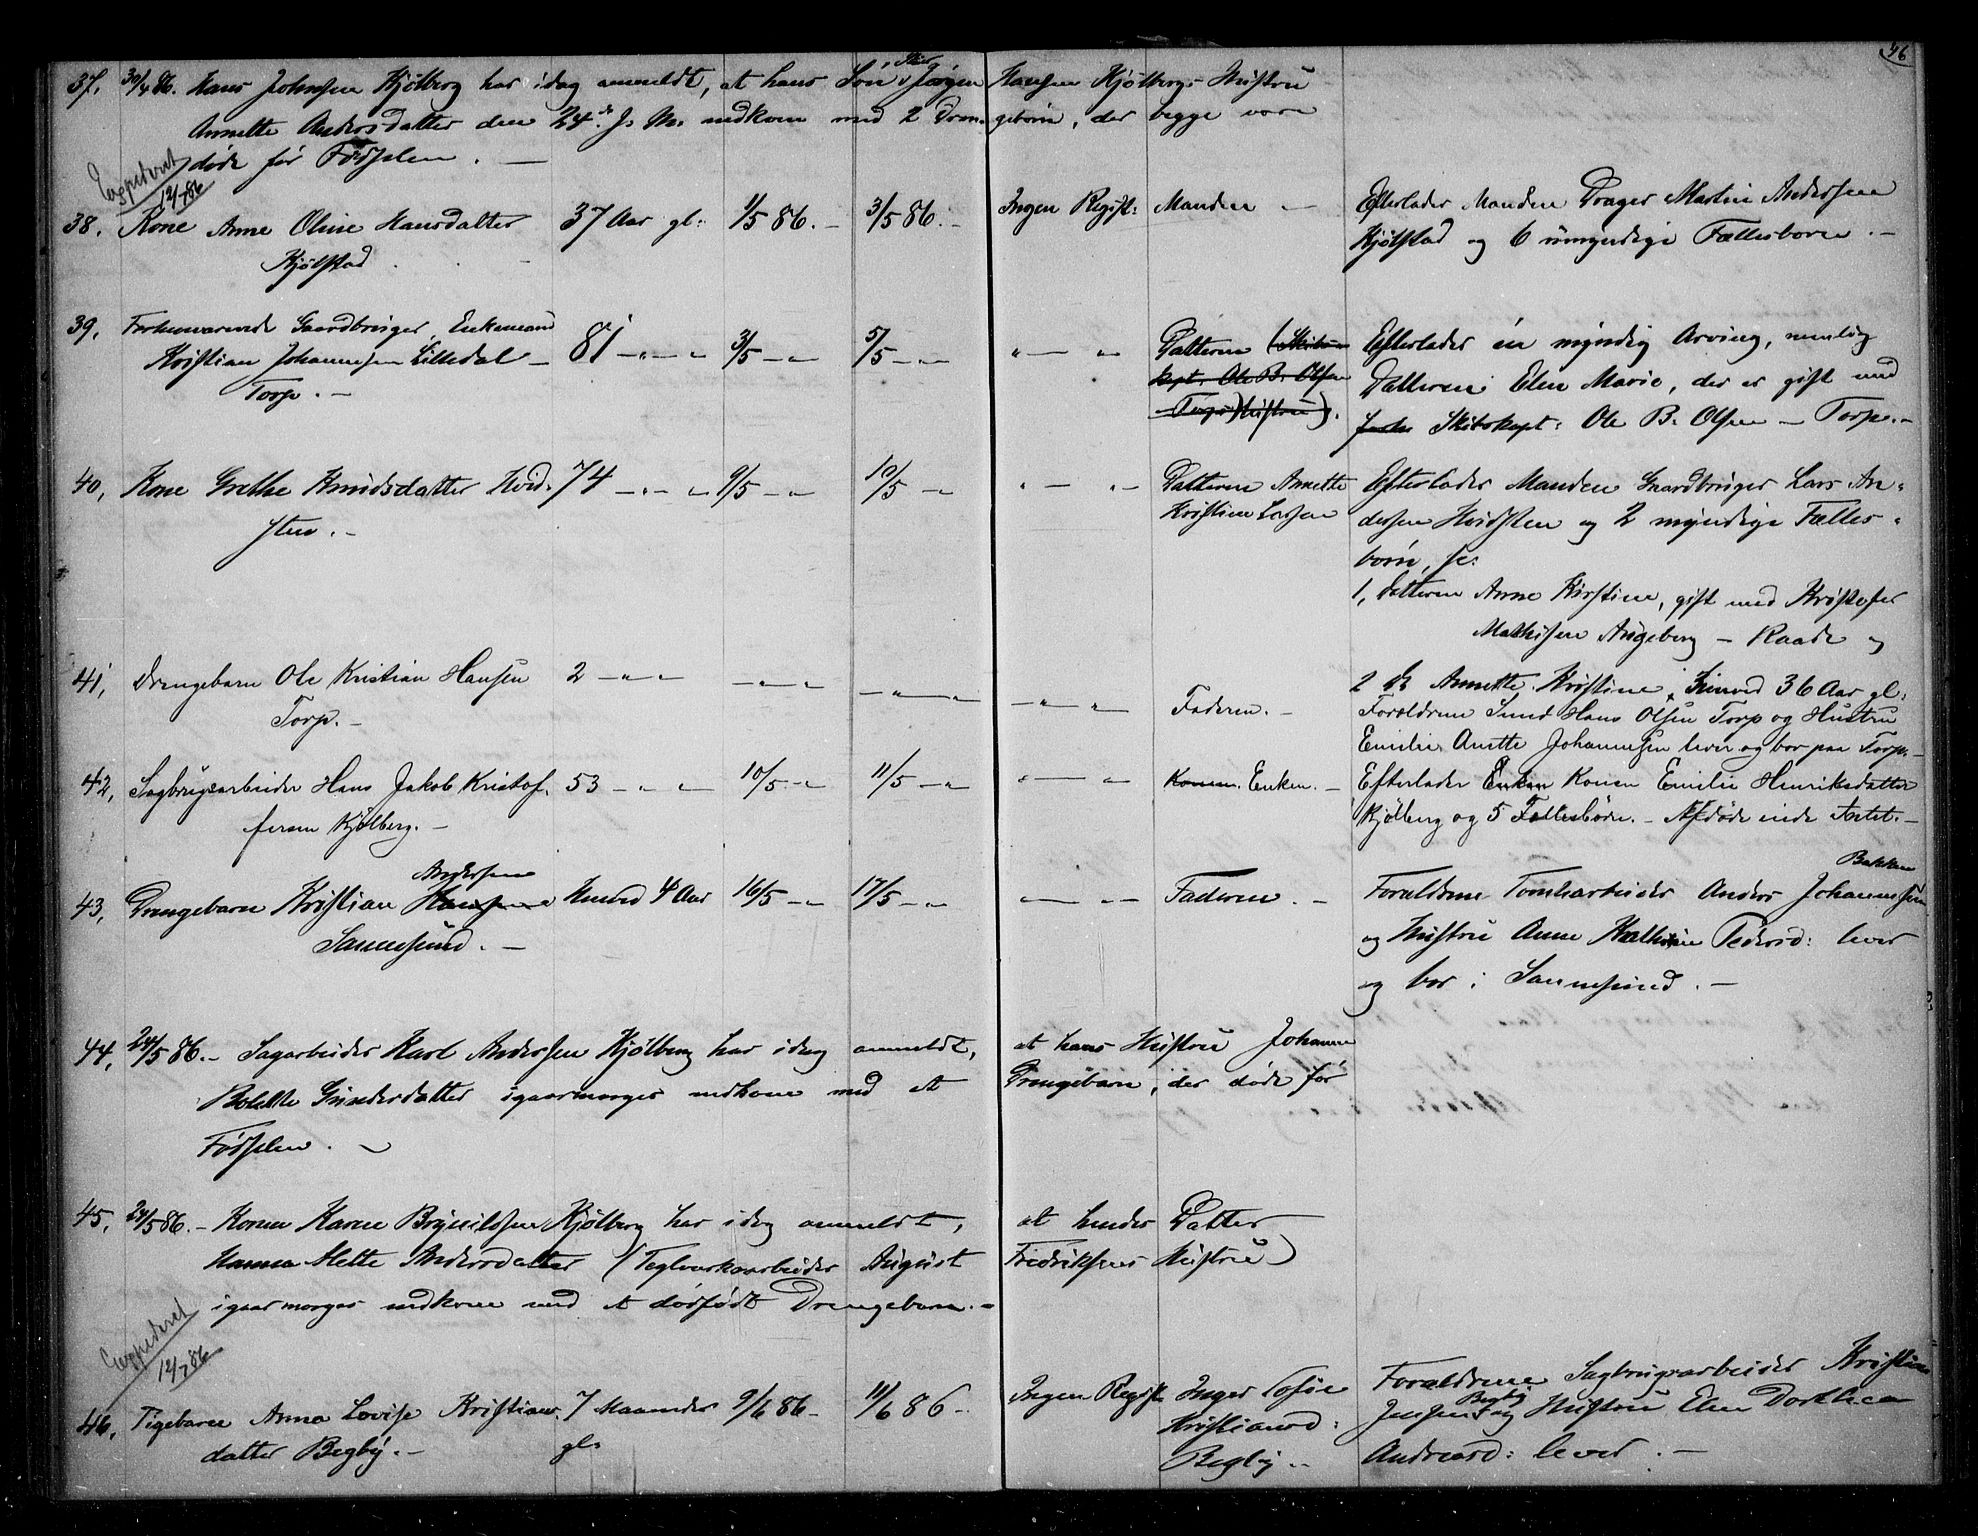 46
37, 30/4 86. Hans Johnsen Kjølberg har idag anmeldt, at hans Søn Jørgen Hansen Kjølbergs Hustru
Annette Andersdatter den 24de f. M. nedkom med 2 Drengebørn, der begge vare
døde før Fødselen. —
Expederet
12/7 86
38, Kone Anne Oline Hansdatter 37 Aar gl: 1/5 86. — 3/5 86. — Ingen Regist: Manden — Efterlader Manden Drager Martin Andersen
Kjølstad Kjølstad og 6 umyndige Fællesbørn. —
39, Forhenværende Gaardbruger, Enkemand 81 — " — " 3/5 — " 5/5 — " " — " Datteren (Skibs- Efterlader én myndig Arving, nemlig
Kristian Johannesen Lilledal — kapt. Ole B. Olsen Datteren Elen Marie, der er gift med
Torp. — Torps Hustru). Skibskapt: Ole B. Olsen — Torp. —
40, Kone Grethe Knudsdatter Hvid- 74 — " — " 9/5 — " 10/5 — " " — " — Datteren Annette Efterlader Manden Gaardbruger Lars An-
sten. — Kristine Larsen dersen Hvidsten og 2 myndige Fælles-
børn, se:
1, Datteren Anne Kirstine, gift med Kristofer
Mathisen Augeberg — Raade og
41, Drengebarn Ole Kristian Hansen 2 — " — " — " — " — " — " " — " Faderen. — 2 do Annette Kristine, 36 Aar gl:
Torp. — Forældrene Hans Olsen Torp og Hustru
Emilie Anette Johannesen lever og bor paa Torp. —
42, Sagbrugsarbeider Hans Jakob Kristof- 53 — " — " 10/5 — " 11/5 — " " — " Konen. Enken. — Efterlader Enken Konen Emilie Henriksdatter
fersen Kjølberg. — Kjølberg og 5 Fællesbørn. — Afdøde eiede Intet. —
Andersen Bakken
43, Drengebarn Kristian Hansen 4 Aar 16/5 — " 17/5 — " " — " — Faderen. — Forældrene Tomtearbeider Anders Johannesen
Sannesund. — og Hustru Anne Kathrine Pedersd: lever
og bor i Sannesund. —
44, 24/5 86. — Sagarbeider Karl Andersen Kjølberg har idag anmeldt, at hans Hustru Johanne
Bolette Gundersdatter igaarmorges nedkom med et Drengebarn, der døde før
Fødselen. —
45, 24/5 86. — Konen Karen Kjølberg har idag anmeldt, at hendes Datter
Hanna Mette Andersdatter (Teglverksarbeider August Fredriksens Hustru)
igaarmorges nedkom med et dødfødt Drengebarn. —
Expederet
12/7 86
46, Pigebarn Anna Lovise Kristians- 7 Maaneder 9/6 86 — 11/6 86 — Ingen Regist. Inger Sofie Forældrene Sagbrugsarbeider Kristian
datter Begby. — gl: Kristiansd: Jensen Begby og Hustru Elen Dorthea
Begby. — Andreasd: lever. —